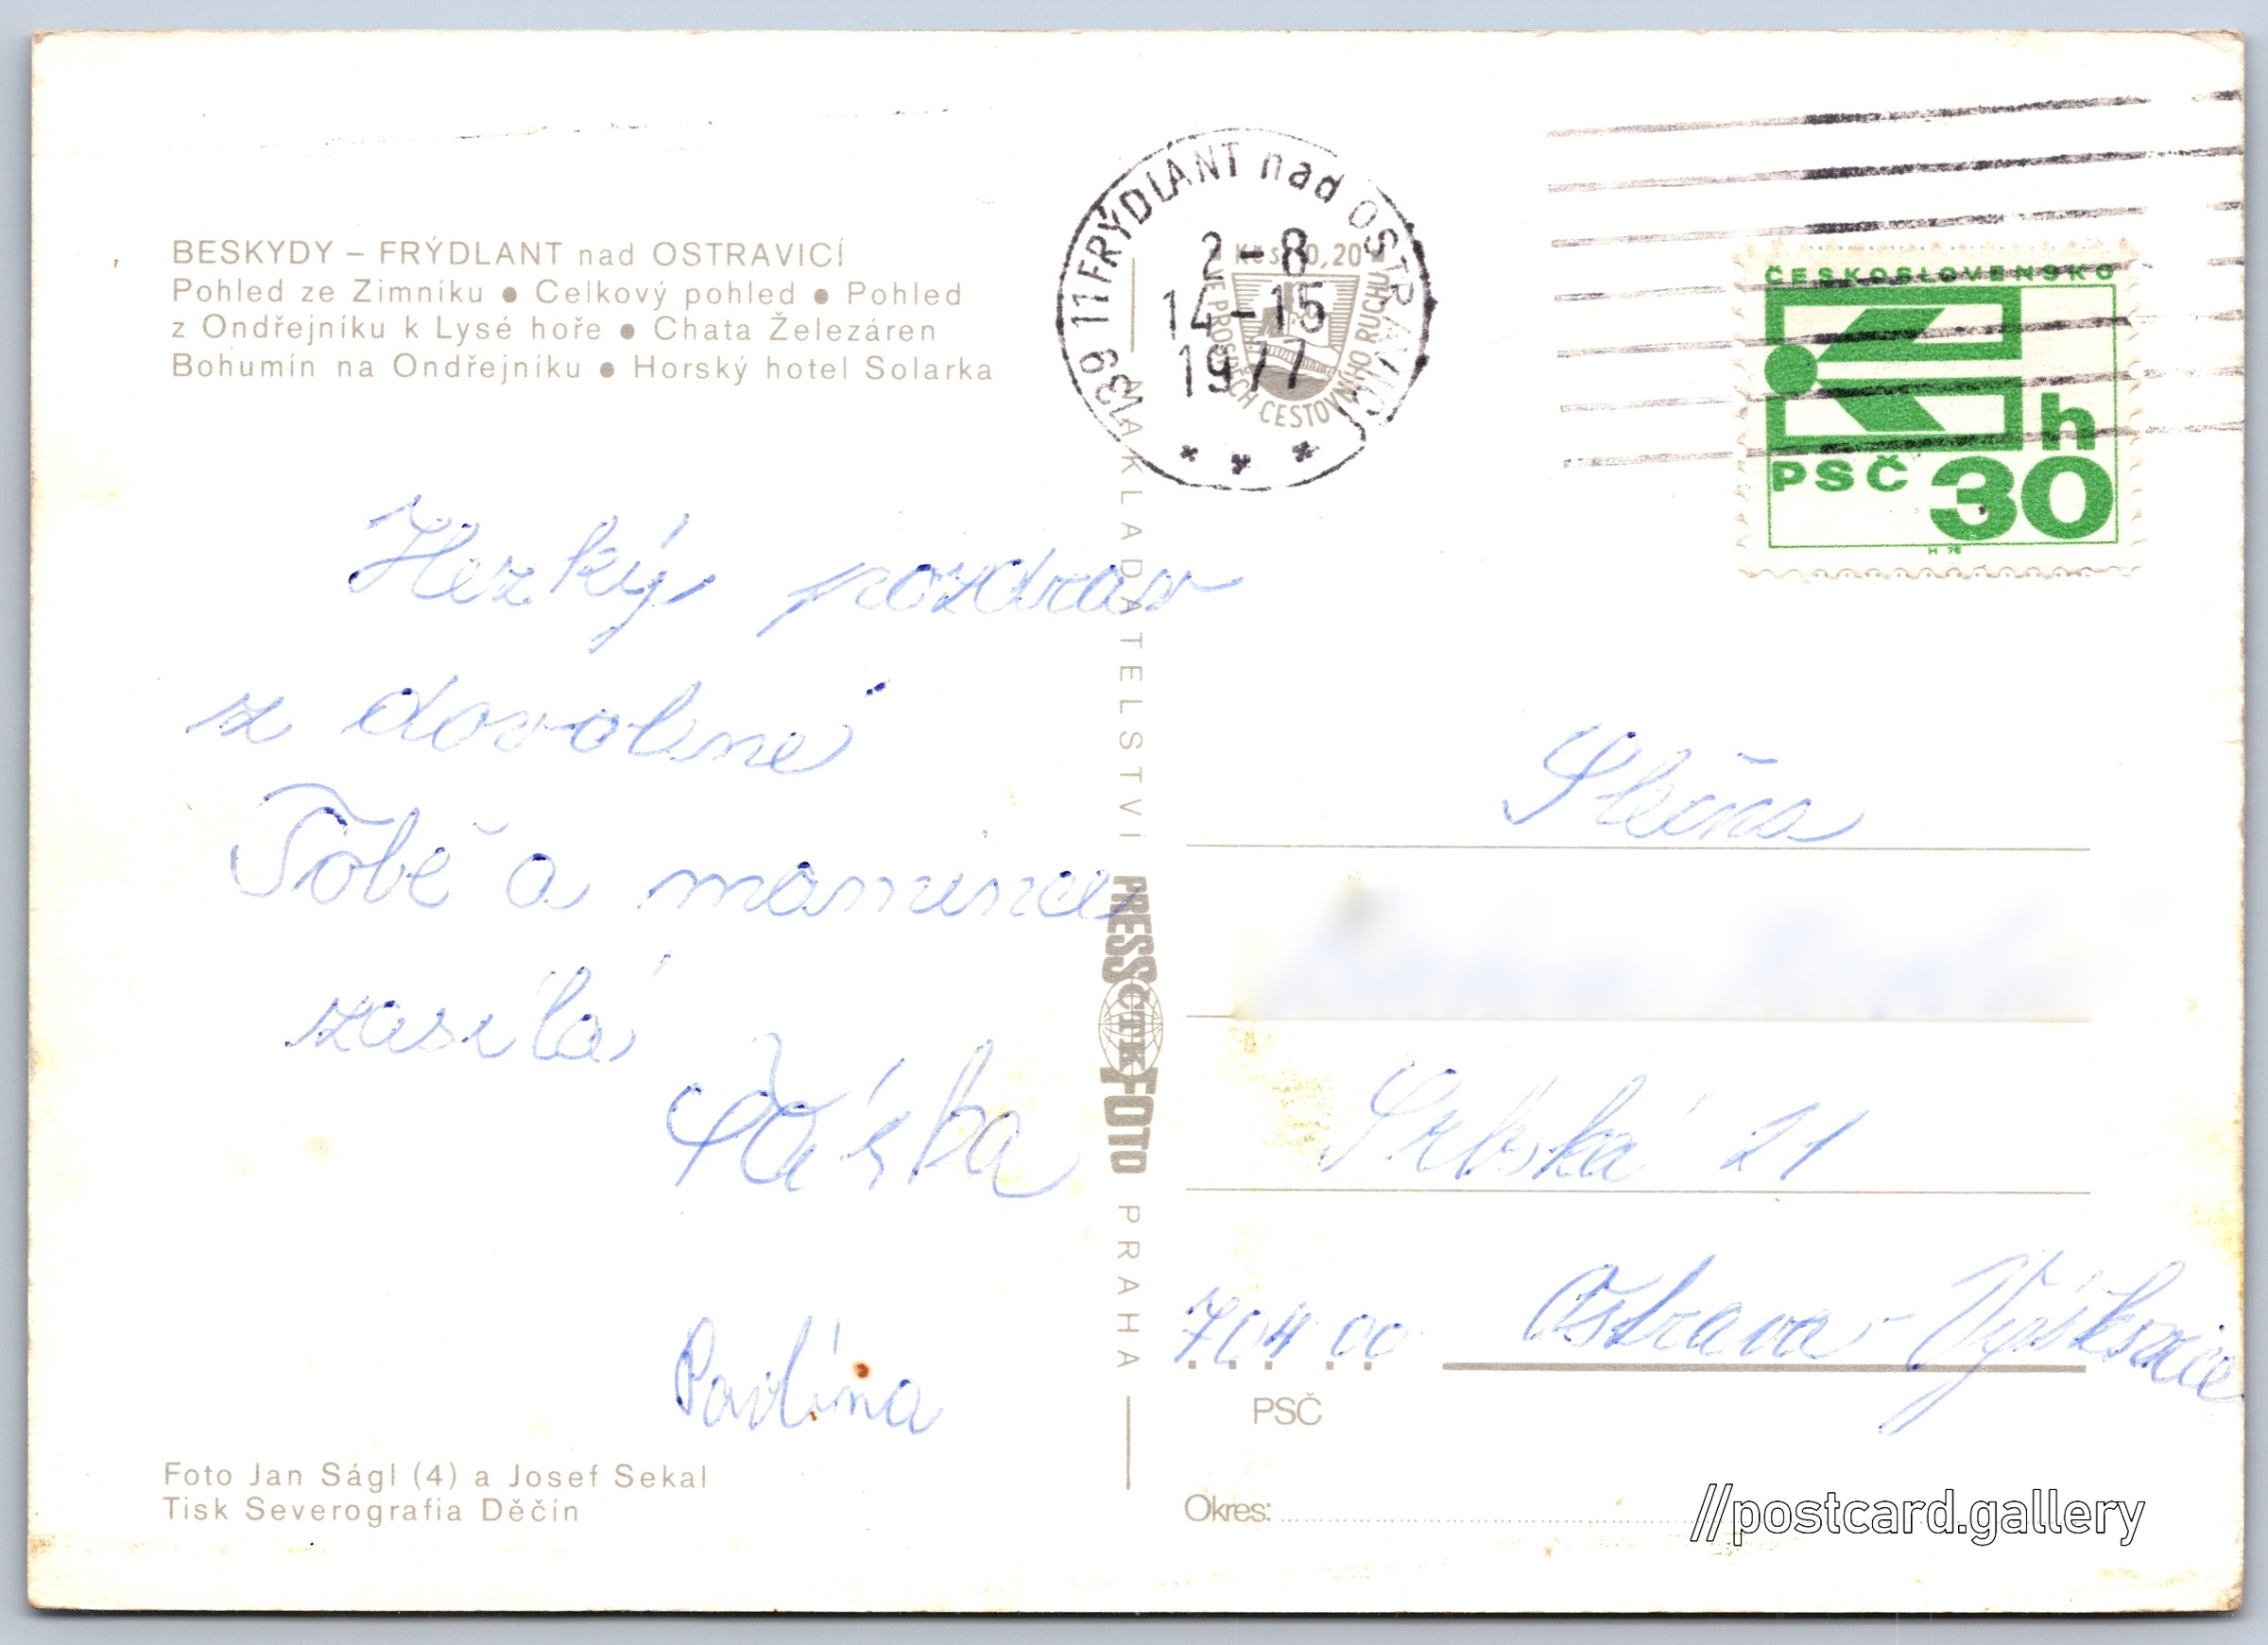 BESKYDY – FRÝDLANT nad OSTRAVICÍ
Pohled ze Zimníku ● Celkový pohled ● Pohled
z Ondřejníku k Lysé hoře ● Chata Železáren
Bohumín na Ondřejníku ● Horský hotel Solarka
739 11 FRÝDLANT nad OSTRAVICÍ
2-8
14-15
1977
Kčs 0,20
VE PROSPĚCH CESTOVNÍHO RUCHU
ČESKOSLOVENSKO
h
PSČ 30
H 76
Hezký pozdrav
z dovolené
Tobě a mamince
zasílá
Pavlína
NAKLADATELSTVÍ PRESSČTKFOTO PRAHA
Slečna
Srbská 21
704 00 Ostrava-Výškovice
PSČ
Okres:
Foto Jan Ságl (4) a Josef Sekal
Tisk Severografia Děčín
//postcard.gallery